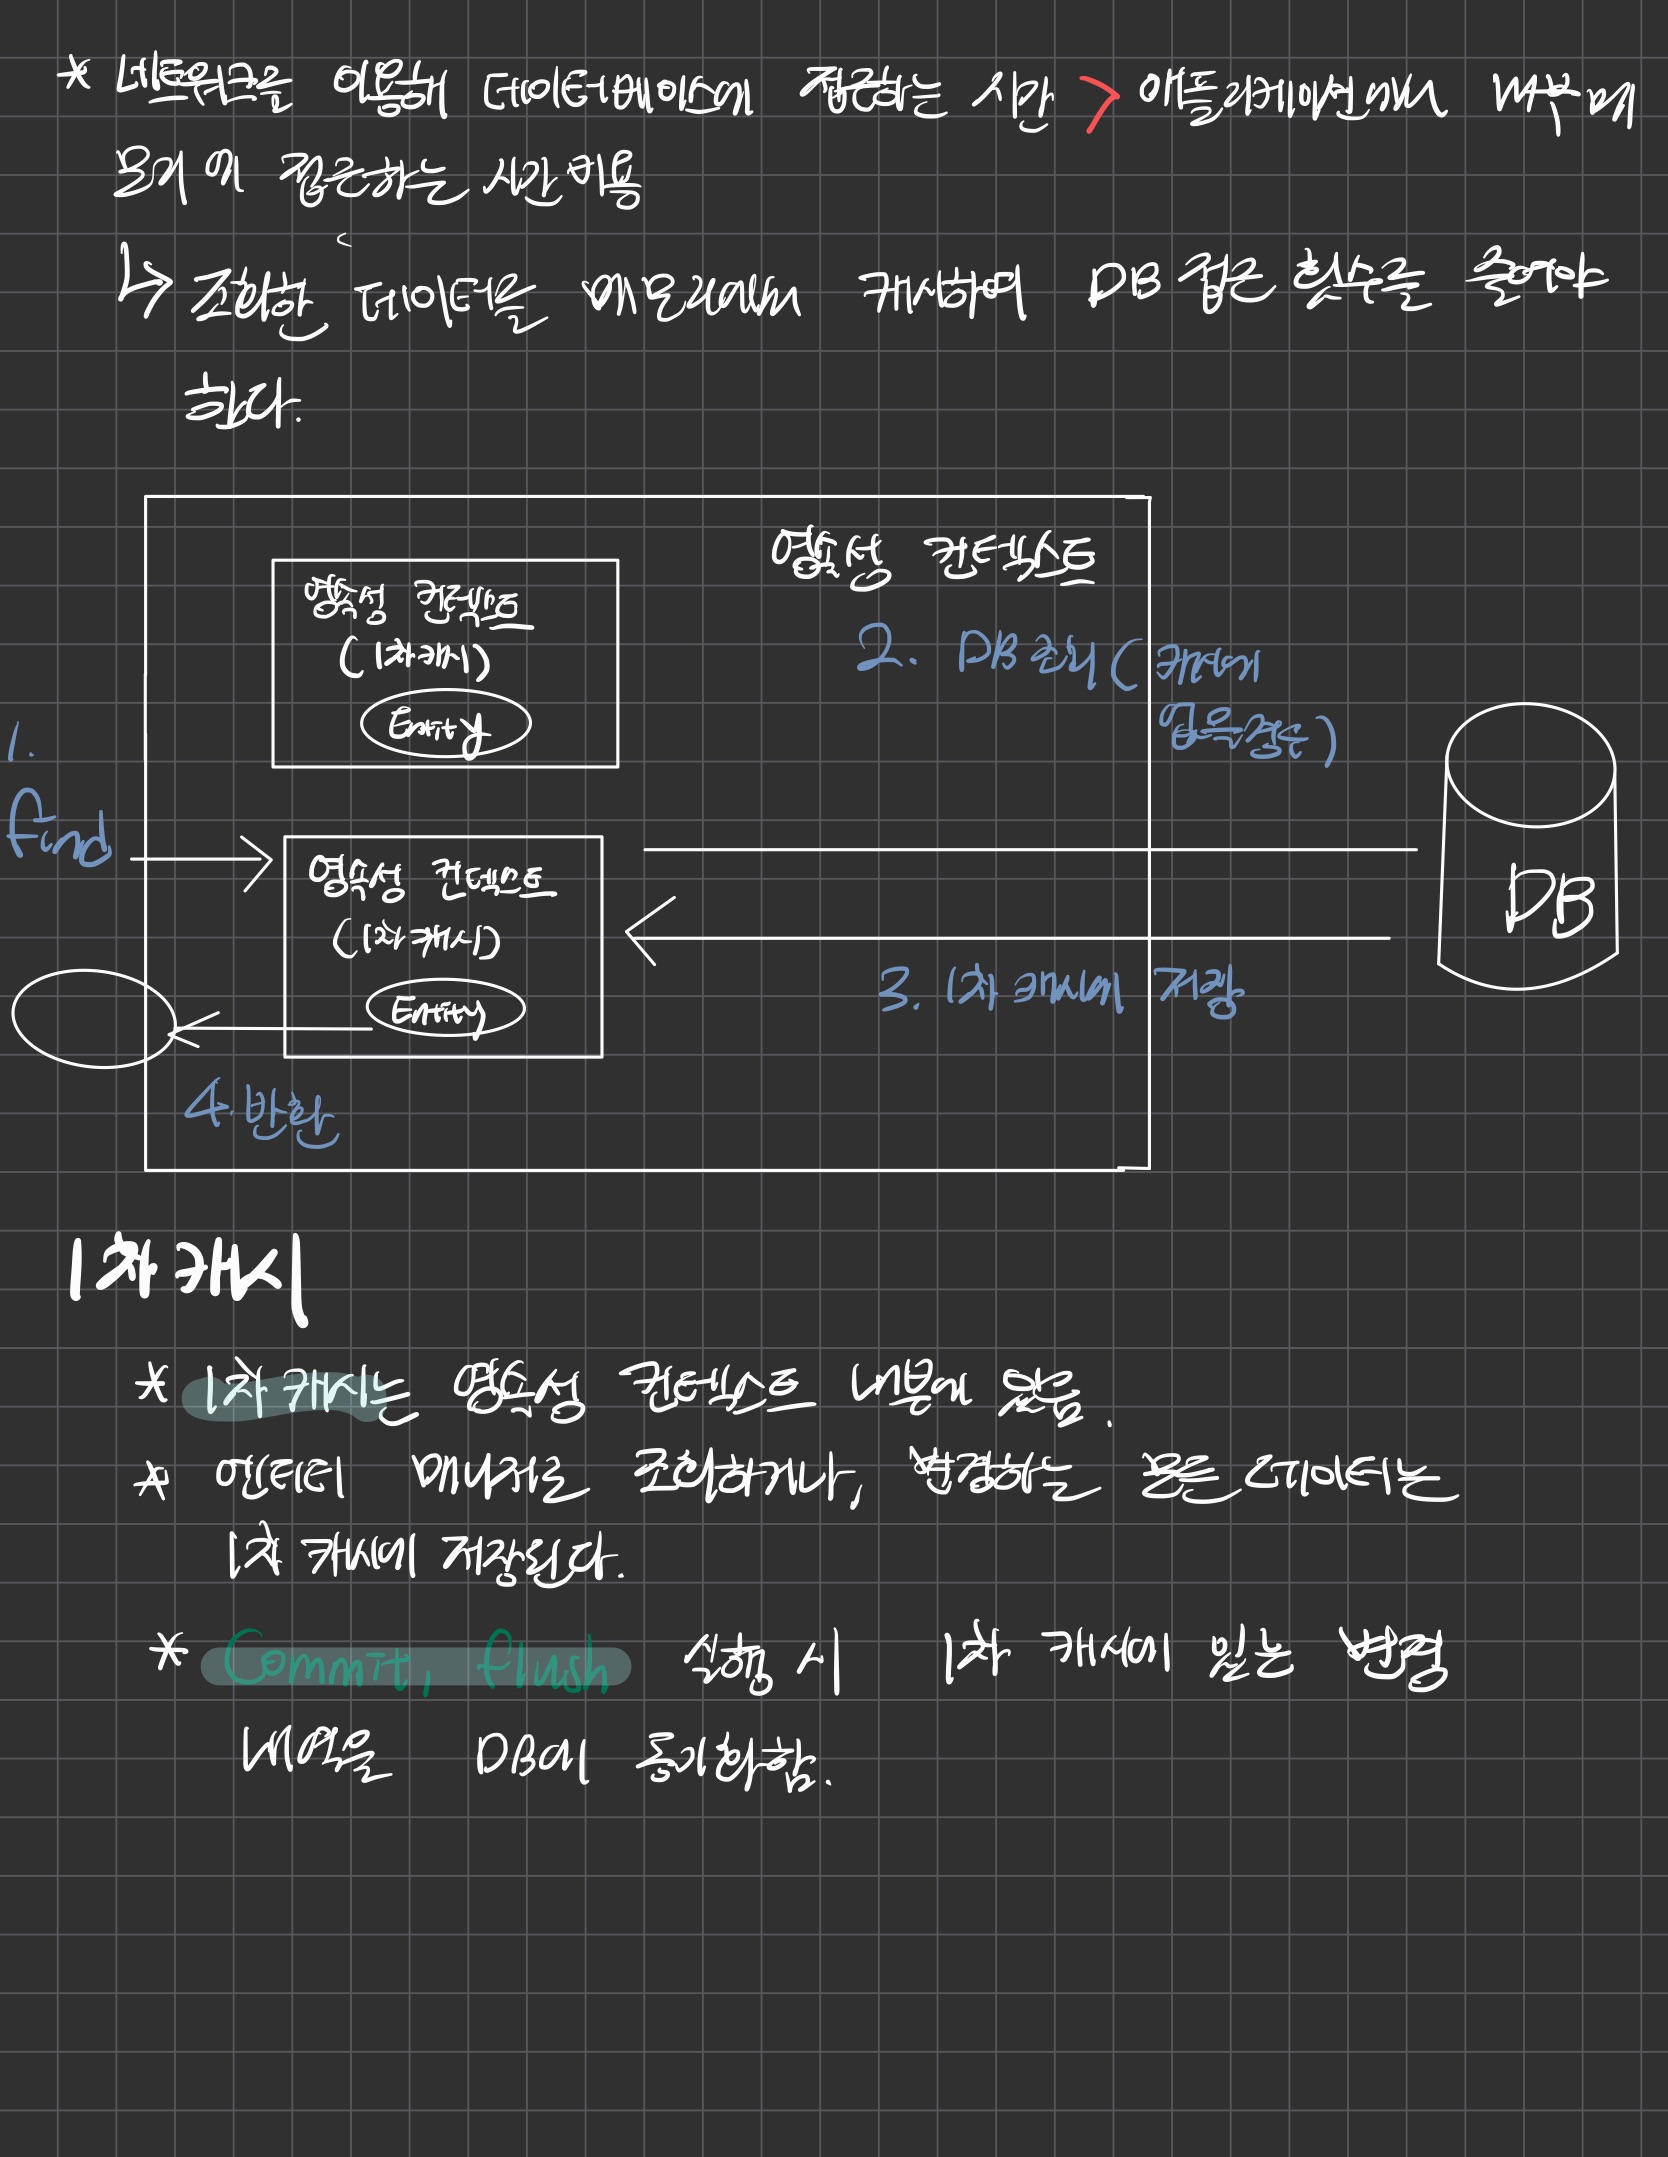 * 네트워크를 이용해 데이터베이스에 접근하는 시간 > 애플리케이션에서 내부 메
모리에 접근하는 시간 비용
↳ 조회한 데이터를 메모리에서 캐시하여 DB 접근 횟수를 줄여야
한다.
영속성 컨텍스트
영속성 컨텍스트
(1차캐시)
Entity
2. DB 조회 (캐시에
없을경우)
1.
find
영속성 컨텍스트
(1차 캐시)
Entity
DB
3. 1차 캐시에 저장
4. 반환
1차 캐시
* 1차 캐시는 영속성 컨텍스트 내부에 있음.
* 엔티티 매니저로 조회하거나, 변경하는 모든 데이터는
1차 캐시에 저장된다.
* Commit, flush 실행 시 1차 캐시에 있는 변경
내역을 DB에 동기화함.